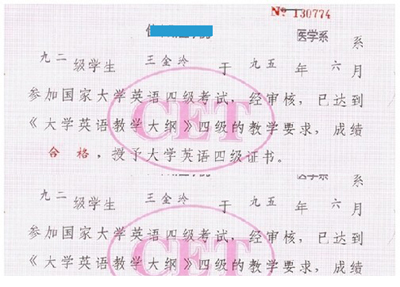 № 130774
医学系 系
九二 级学生 王金泠 于 九五 年 六 月
参加国家大学英语四级考试，经审核，已达到
《大学英语教学大纲》四级的教学要求，成绩
合格，授予大学英语四级证书。
CET
医学系 系
九二 级学生 王金泠 于 九五 年 六 月
参加国家大学英语四级考试，经审核，已达到
《大学英语教学大纲》四级的教学要求，成绩
CET